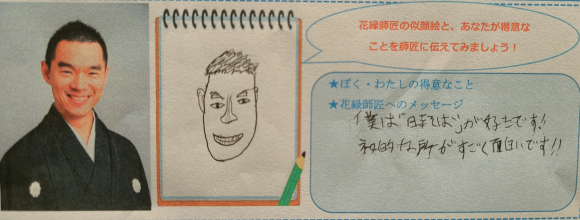 花緑師匠の似顔絵と、あなたが得意な
ことを師匠に伝えてみましょう！
★ぼく・わたしの得意なこと
★花緑師匠へのメッセージ
僕は「時そば」が好きです!!
知的な所がすごく面白いです!!